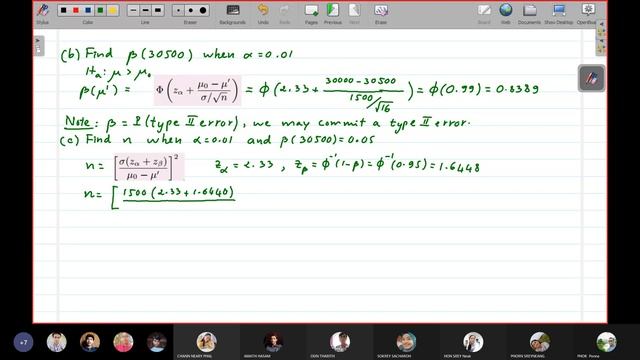 Stylus
Color
Lines
Erase
Backgrounds
Undo
Redo
Pages
Previous
Next
Erase
Show Desktop
(b) Find β(30500) when α=0.01
Ha: μ > μ₀
β(μ') = Φ(zα + (μ₀ − μ')/(σ/√n)) = Φ(2.33 + (30000−30500)/(1500/√16)) = Φ(0.99) = 0.8389
Note: β = P(type II error), we may commit a type II error.
(c) Find n when α=0.01 and β(30500)=0.05
n = [σ(zα + zβ)/(μ₀ − μ')]² zα = 2.33, zβ = Φ⁻¹(1−β) = Φ⁻¹(0.95) = 1.6448
n = [1500(2.33+1.6448)
+7
CHANN NEARY PHAL
AMATH HASAM
ODN THARITH
SOKREY SACHAROH
HON SREY Neak
PHORN SREYNEANG
PHOR Panna